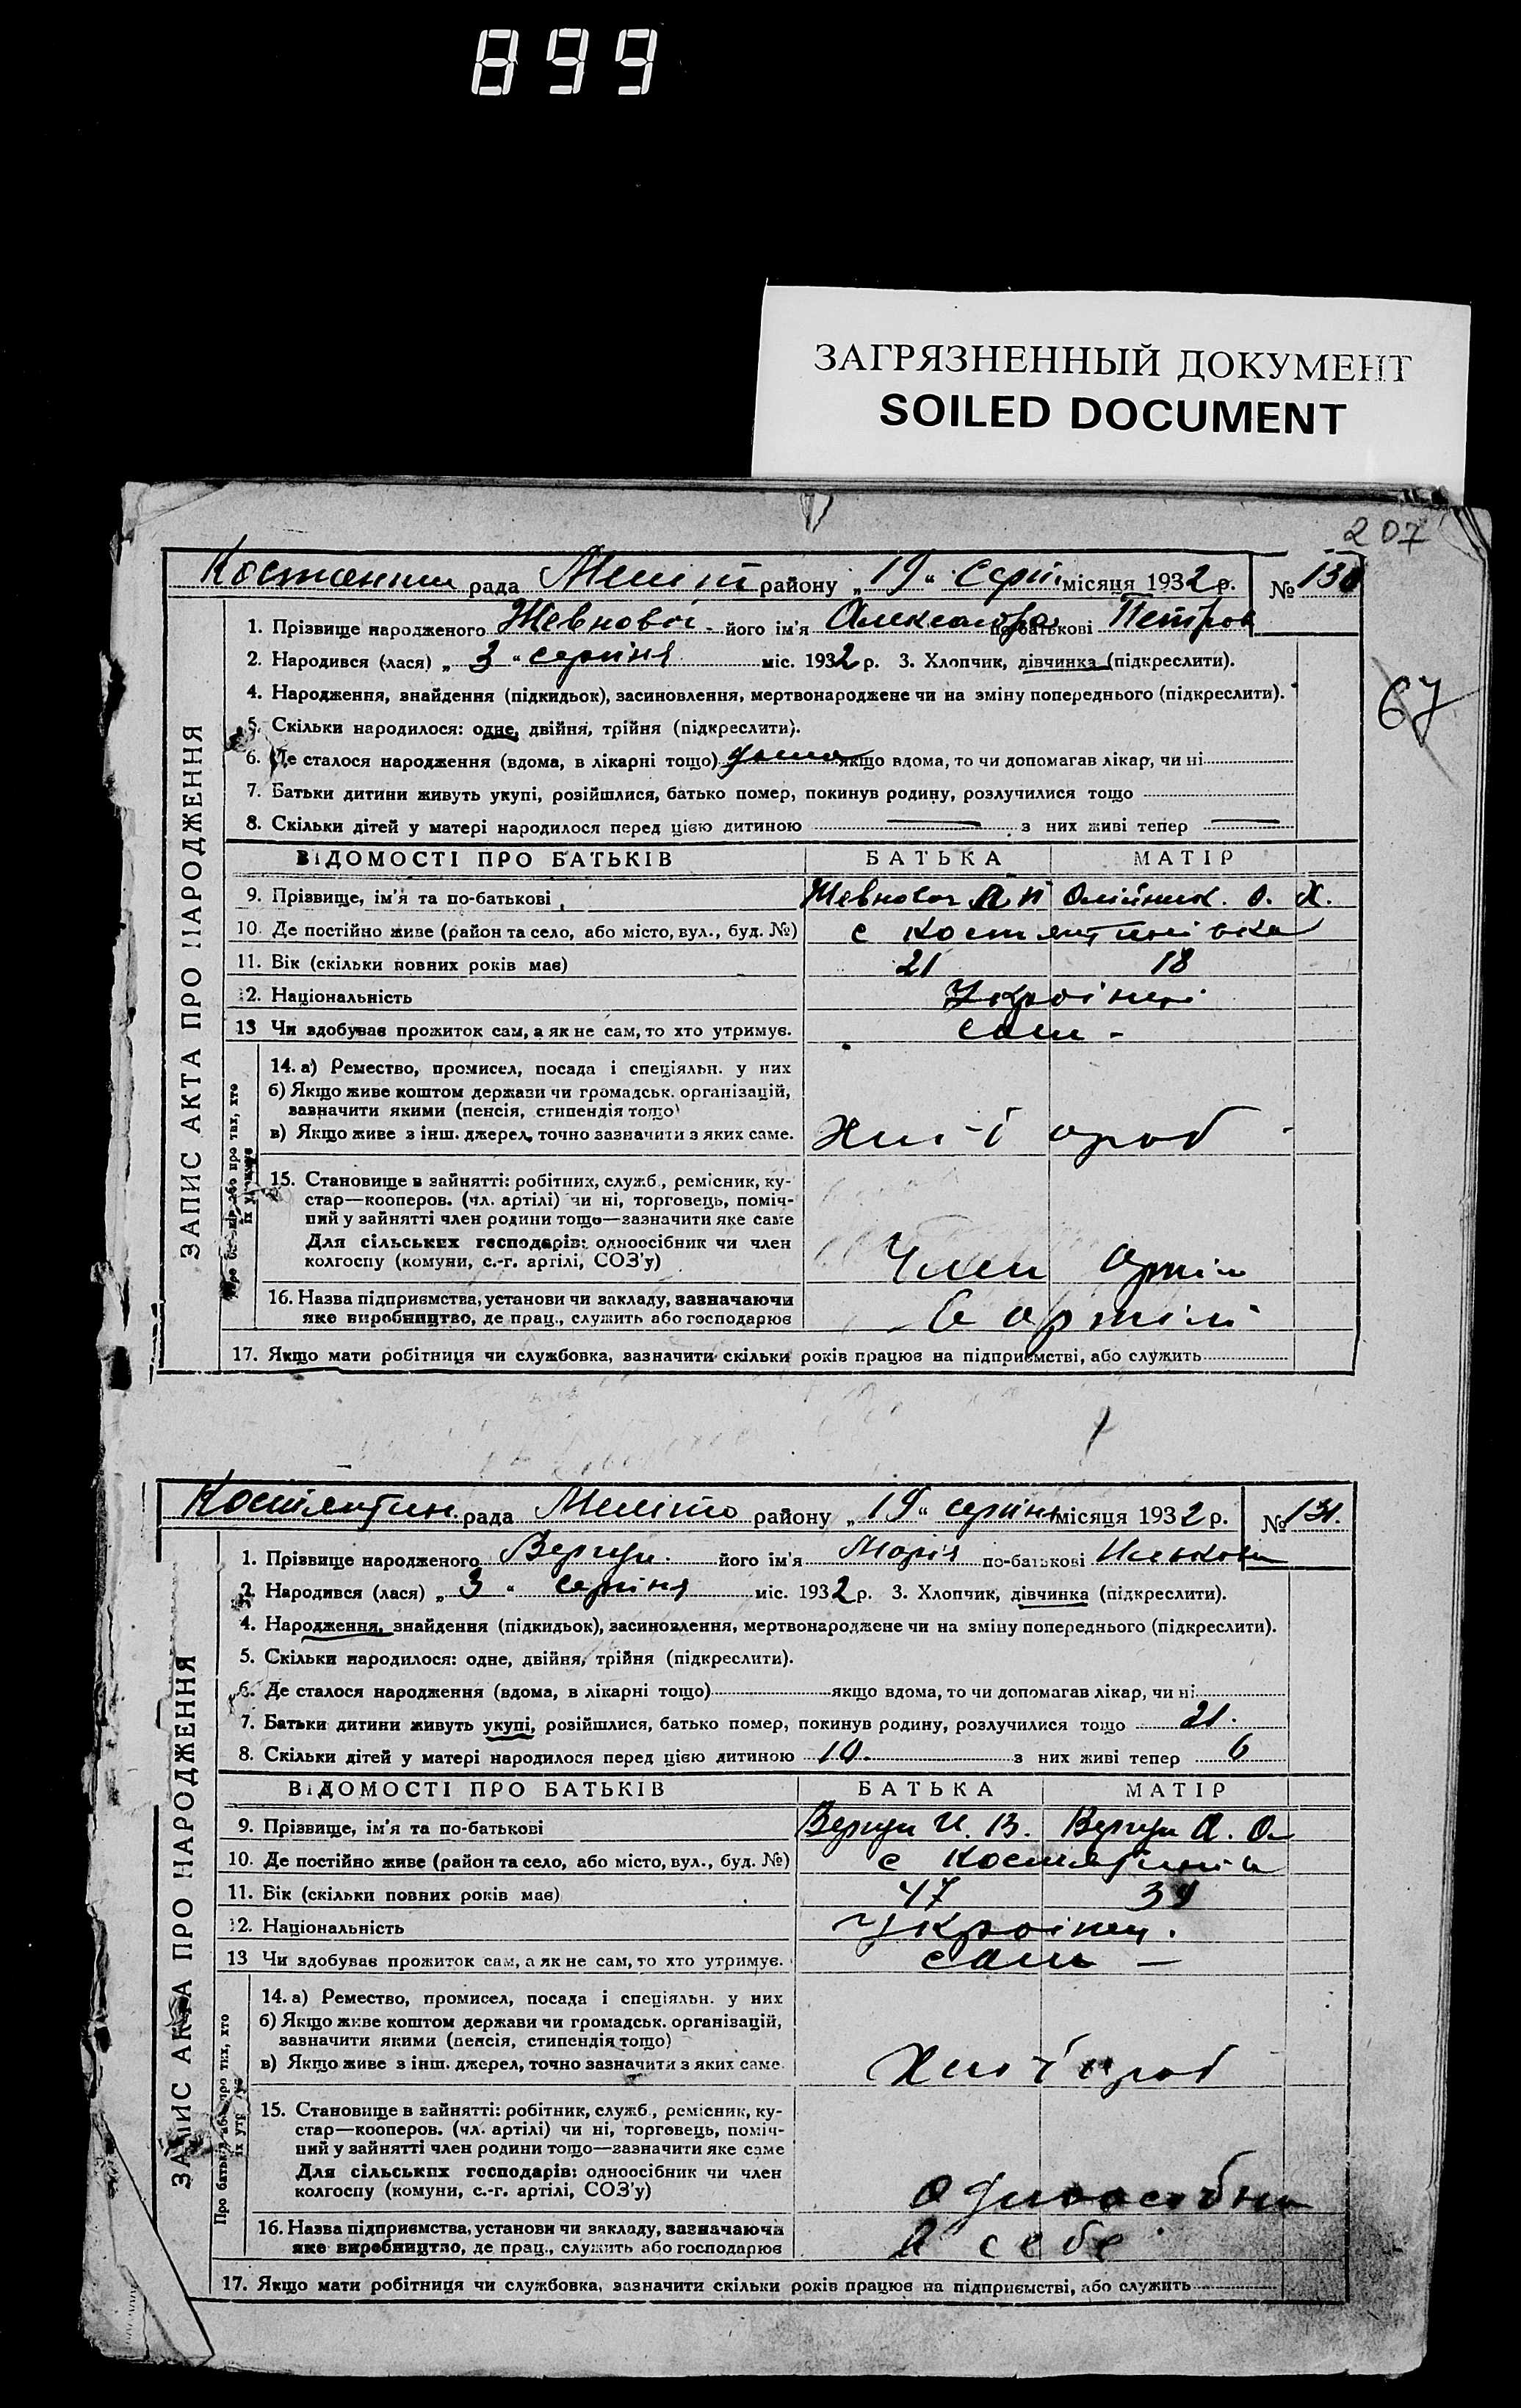 899
ЗАГРЯЗНЕННЫЙ ДОКУМЕНТ
SOILED DOCUMENT
207
67
рада Меліт району „19“ Серп. місяця 1932 р. № 130
ЗАПИС АКТА ПРО НАРОДЖЕННЯ
1. Прізвище народженого його ім'я Александра по-батькові Петров
2. Народився (лася) „3“ серпня міс. 1932 р. 3. Хлопчик, дівчинка (підкреслити).
4. Народження, знайдення (підкидьок), засиновлення, мертвонароджене чи на зміну попереднього (підкреслити).
5. Скільки народилося: одне, двійня, трійня (підкреслити).
6. Де сталося народження (вдома, в лікарні тощо) дома якщо вдома, то чи допомагав лікар, чи ні
7. Батьки дитини живуть укупі, розійшлися, батько помер, покинув родину, розлучилися тощо
8. Скільки дітей у матері народилося перед цією дитиною — з них живі тепер —
ВІДОМОСТІ ПРО БАТЬКІВ БАТЬКА МАТІР
9. Прізвище, ім'я та по-батькові Олійник. О. Х.
10. Де постійно живе (район та село, або місто, вул., буд. №) с Костянтинівка
11. Вік (скільки повних років має) 21 18
12. Національність Українці
13 Чи здобуває прожиток сам, а як не сам, то хто утримує. сам -
14. а) Ремество, промисел, посада і спеціяльн. у них
б) Якщо живе коштом держави чи громадськ. організацій,
зазначити якими (пенсія, стипендія тощо)
в) Якщо живе з інш. джерел, точно зазначити з яких саме.
15. Становище в зайнятті: робітник, служб., ремісник, ку-
стар—кооперов. (чл. артілі) чи ні, торговець, поміч-
ний у зайнятті член родини тощо—зазначити яке саме
Для сільських господарів: одноосібник чи член
колгоспу (комуни, с.-г. артілі, СОЗ'у) Член Артіл
16. Назва підприємства, установи чи закладу, зазначаючи
яке виробництво, де прац., служить або господарює в артілі
17. Якщо мати робітниця чи службовка, зазначити скільки років працює на підприємстві, або служить
Костянтин. рада Меліто району „19“ серпня місяця 1932 р. № 131.
ЗАПИС АКТА ПРО НАРОДЖЕННЯ
1. Прізвище народженого Вергун. його ім'я Марія по-батькові
2. Народився (лася) „3“ серпня міс. 1932 р. 3. Хлопчик, дівчинка (підкреслити).
4. Народження, знайдення (підкидьок), засиновлення, мертвонароджене чи на зміну попереднього (підкреслити).
5. Скільки народилося: одне, двійня, трійня (підкреслити).
6. Де сталося народження (вдома, в лікарні тощо) якщо вдома, то чи допомагав лікар, чи ні
7. Батьки дитини живуть укупі, розійшлися, батько помер, покинув родину, розлучилися тощо 21.
8. Скільки дітей у матері народилося перед цією дитиною 10. з них живі тепер 6
ВІДОМОСТІ ПРО БАТЬКІВ БАТЬКА МАТІР
9. Прізвище, ім'я та по-батькові Вергун И. В. Вергун А. О.
10. Де постійно живе (район та село, або місто, вул., буд. №) с
11. Вік (скільки повних років має) 47 39
12. Національність Українц.
13 Чи здобуває прожиток сам, а як не сам, то хто утримує. сам —
14. а) Ремество, промисел, посада і спеціяльн. у них
б) Якщо живе коштом держави чи громадськ. організацій,
зазначити якими (пенсія, стипендія тощо)
в) Якщо живе з інш. джерел, точно зазначити з яких саме.
15. Становище в зайнятті: робітник, служб., ремісник, ку-
стар—кооперов. (чл. артілі) чи ні, торговець, поміч-
ний у зайнятті член родини тощо—зазначити яке саме
Для сільських господарів: одноосібник чи член
колгоспу (комуни, с.-г. артілі, СОЗ'у)
16. Назва підприємства, установи чи закладу, зазначаючи
яке виробництво, де прац., служить або господарює себе
17. Якщо мати робітниця чи службовка, зазначити скільки років працює на підприємстві, або служить